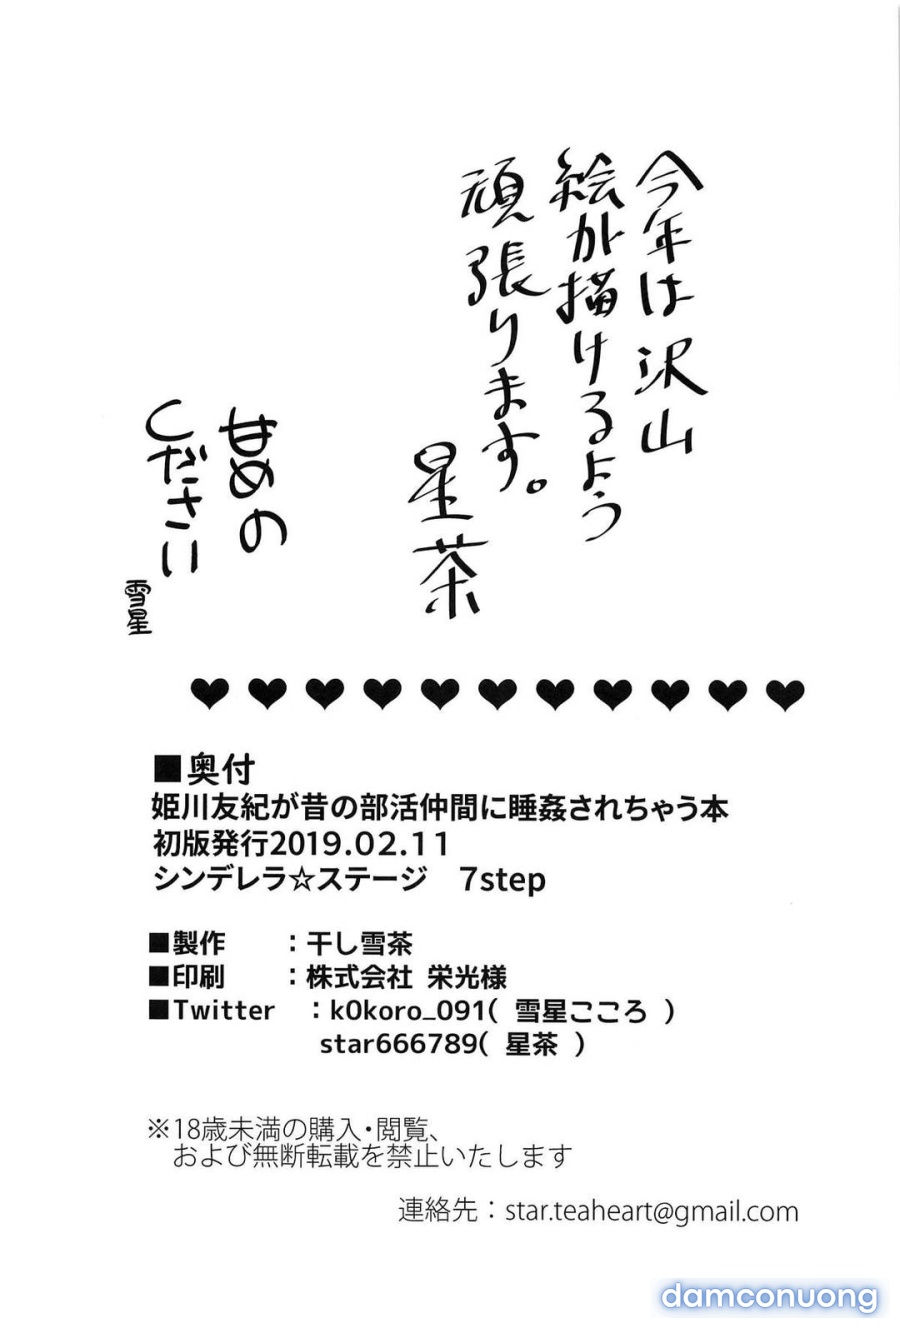 今年は沢山
絵が描けるよう
頑張ります。
星茶
甘めの
ください
雪星
■奥付
姫川友紀が昔の部活仲間に睡姦されちゃう本
初版発行2019.02.11
シンデレラ☆ステージ 7step
■製作 :干し雪茶
■印刷 :株式会社 栄光様
■Twitter :k0koro_091( 雪星こころ )
star666789( 星茶 )
※18歳未満の購入・閲覧、
および無断転載を禁止いたします
連絡先:star.teaheart@gmail.com
damconuong